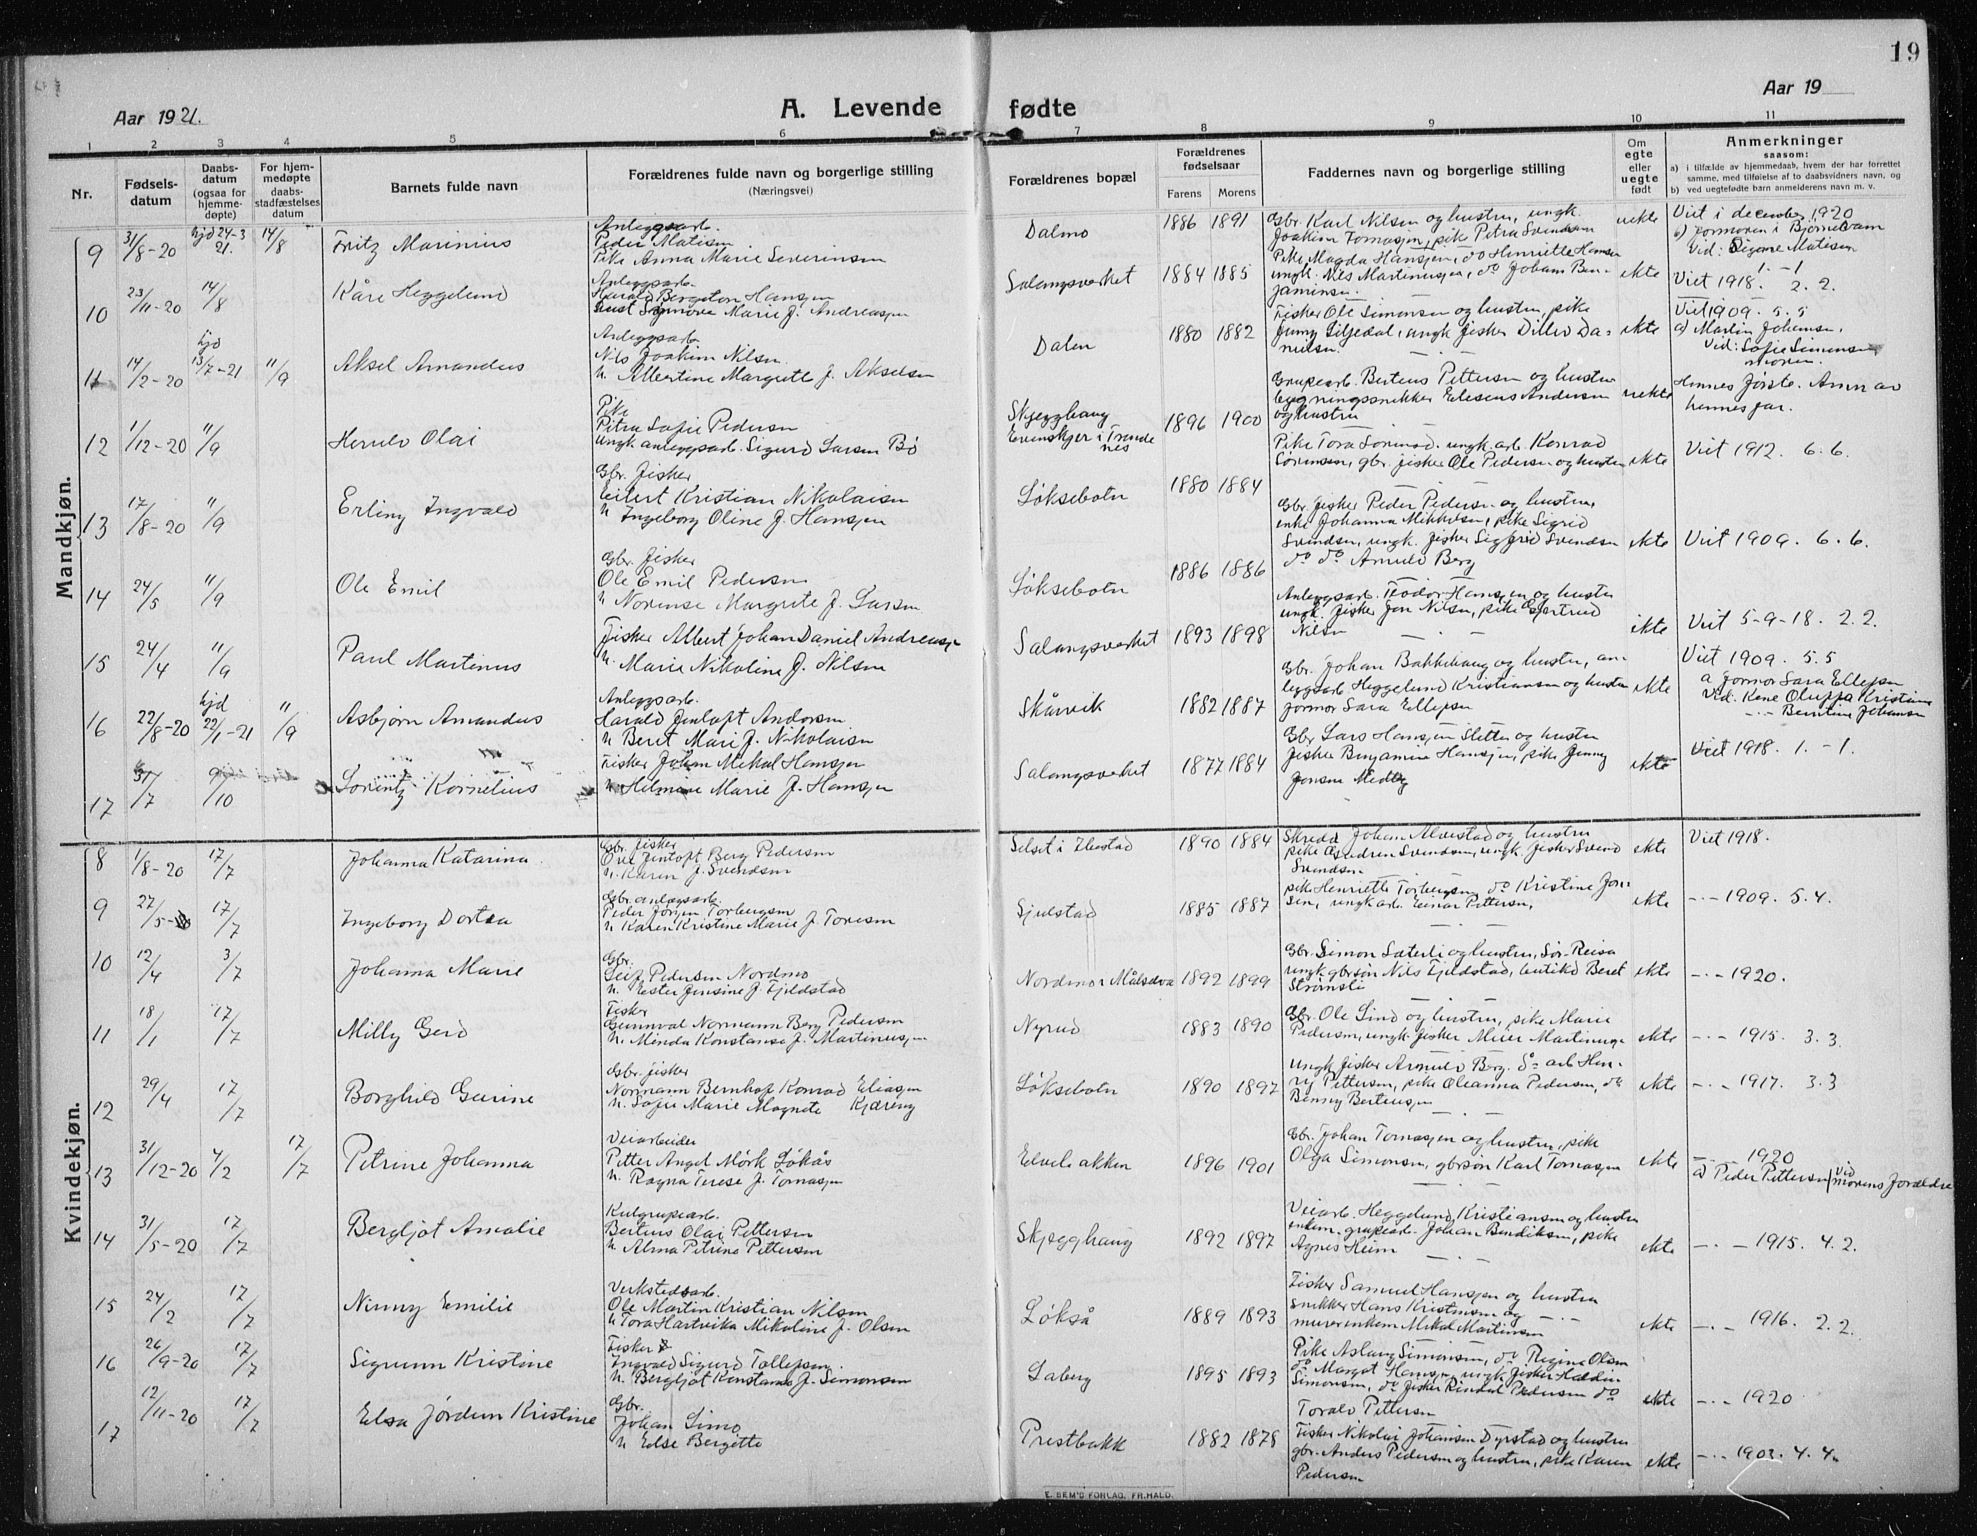 19
Aar 1921.
A. Levende fødte
Aar 19
1 2 3 4 5 6 7 8 9 10 11
Nr.
Fødsels-
datum
Daabs-
datum
(ogsaa for
hjemme-
døpte)
For hjem-
medøpte
daabs-
stadfæstelses
datum
Barnets fulde navn
Forældrenes fulde navn og borgerlige stilling
(Næringsvei)
Forældrenes bopæl
Forældrenes
fødselsaar
Farens Morens
Faddernes navn og borgerlige stilling
Om
egte
eller
uegte
født
Anmerkninger
saasom:
a) i tilfælde av hjemmedaab, hvem der har forrettet
samme, med tilføielse af to daabsvidners navn, og
b) ved uegtefødt barn anmelderens navn m. v.
Mandkjøn.
9 31/8-20 hjd 24-3 21. 14/8 Fritz Marinius
Anleggsarb.
Peder Matisen
Pike Anna Marie Severinsen
Dalmo 1886 1891
Gbr. Karl Nilsen og hustru, ungk.
Joakim Tomassen, pike Petra Svendsen
uekte
Viet i december 1920
Vid: Signe Matisen
10 23/11-20 14/8 Kåre Heggelund
Anleggsarb.
Harald Bergeton Hansen
Marie f. Andreassen
Salangsverket 1884 1885
Pike Magda Hansen, do Henriette Hansen
ungk. Nils Martinussen, do Johan Ben-
jaminsen.
ekte
Viet 1918. 1. -1
2. 2.
11 14/2-20 hjd 13/7-21 11/9 Aksel Amandus
Anleggsarb.
Nils Joakim Nilsen.
h. Albertine Margrete f. Akselsen
Dalen 1880 1882
Fisker Ole Simonsen og hustru, pike
Jenny Liljedal, ungk. fisker Ditlev Da-
nielsen.
ekte
Viet 1909. 5. 5
a) Martin Johansen.
Vid: Sofie Simonsen
moren
12 1/12-20 11/9 Herulv Olai
Pike
Petra Sofie Pedersen
Ungk anleggsarb. Sigurd Larsen Bø
Skjegghaug
Evenskjer i Tronde
nes
1896 1900
Grupearb. Berteus Pettersen og hustru
bygningssnikker Elesens Andersen
og hustru
uekte
Hennes første. Anm av
hennes far.
13 17/8-20 11/9 Erling Ingvald
Gbr. fisker
Eilert Kristian Nikolaisen
h. Ingeborg Oline f. Hansen
Løksebotn 1880 1884
Pike Tora Sørensen. ungk. arb. Konrad
Sørensen, gbr. fisker Ole Pedersen og hustru
ekte
Viet 1912. 6. 6.
14 24/5 11/9 Ole Emil
Gbr. fisker
Ole Emil Pedersen
h. Norense Margrete f. Larsen
Løksebotn 1886 1886
Gbr. fisker Peder Pedersen og hustru,
enke Johanna Mikkelsen, pike Sigrid
Svendsen, ungk. fisker Sigfrid Svendsen
do do Arnulv Berg
ekte
Viet 1909. 6. 6.
15 24/4 11/9 Paul Martinus
Fisker Albert Johan Daniel Andreassen
h. Marie Nikoline f. Nilsen
Salangsverket 1893 1898
Anleggsarb. Teodor Hansen og hustru
ungk. fisker Jon Nilsen, pike Gjertrud
Nilsen
ekte
Viet 5-9-18. 2. 2.
16 22/8-20 hjd 22/1-21 11/9 Asbjørn Amandus
Anleggsarb.
Harald Jentoft Andersen
h. Beret Marie f. Nikolaisen
Skårvik 1882 1887
Gbr. Johan Bakkehaug og hustru, an-
leggsarb Heggelund Kristiansen og hustru
formor Sara Ellefsen
ekte
Viet 1909. 5. 5
a formor Sara Ellefsen
Vid. Kone Oluffa Kristians
-.- Berntine Johansen
17 31/7 9/10 Lorentz Kornelius
Fisker Johan Mekal Hansen
h. Helmine Marie f. Hansen
Salangsverket 1877 1884
Gbr Lars Hansen Sletten og hustru
fisker Benjamin Hansen, pike Jenny
Jensen Medby
ekte
Viet 1918. 1. -1.
Kvindekjøn.
8 1/8-20 17/7 Johanna Katarina.
Gbr. fisker
Ove Jentoft Berg Pedersen
h. Karen f. Svendsen
Selset i Ibestad 1890 1884
Skredd. Johan Alvestad og hustru
pike Gudren Svendsen, ungk. fisker Svend
Svendsen
ekte
Viet 1918.
9 27/5-20 17/7 Ingeborg Dortea
Gbr. anlægsarb.
Peder Jørgen Torbergsen
h. Karen Kristine Marie f. Toresen
Sjelstad 1885 1887
pike Henriette Torbergsen, do Kristine Jon-
sen, ungk arb. Einar Pettersen,
ekte
-.- 1909. 5. 4.
10 12/4 3/7 Johanna Marie
Gbr.
Leif Pedersen Nordmo
h. Ester Jensine f. Fjeldstad
Nordmo i Målselva 1892 1899
Gbr. Simon Sæterli og hustru, Sør-Reisa
ungk gbrsøn Nils Fjeldstad, butikd Beret
Strømsli
ekte
-.- 1920.
11 18/1 17/7 Milly Gerd
Fisker
Gunnval Normann Berg Pedersen
h. Minda Konstanse f. Martinussen
Nyrud 1883 1890
Gbr. Ole Lind og hustru, pike Marie
Pedersen, ungk. fisker Meier Martinusse
ekte
-.- 1915. 3. 3.
12 29/4 17/7 Borghild Gurine
Gbr. fisker
Normann Bernhof Konrad Eliasen
h. Sofie Marie Magnete Kjæreng
Løksebotn 1890 1897
Ungk fisker Arnulv Berg. do arb Hen-
ry Pettersen, pike Oleanna Pedersen, do
Benny Berteussen
ekte
-.- 1917. 3. 3
13 31/12-20 4/2 17/7 Petrine Johanna
Veiarbeider
Petter Angel Mørk Løkås
h. Ragna Terese f. Tomassen
Elvebakken 1896 1901
Gbr. Johan Tomassen og hustru, pike
Olga Simonsen, gbrsøn Karl Tomassen
ekte
-.- 1920
a) Peder Pettersen vid morens forældre
14 31/5-20 17/7 Bergljot Amalie
Kulgrupearb.
Berteus Olai Pettersen
h. Alma Petrine Pettersen
Skjegghaug 1892 1897
Veiarb. Heggelund Kristiansen og hustru
enkem. grupearb. Johan Bendiksen, pike
Agnes Heim
ekte
-.- 1915. 4. 2.
15 24/2 17/7 Ninny Emilie
Verkstedsarb.
Ole Martin Kristian Nilsen
h Tora Hartvika Nikoline f. Olsen
Løkså 1889 1893
Fisker Samuel Hansen og hustru
snikker Hans Kristensen og -.-
murer enkem Mekal Martinsen
ekte
-.- 1916. 2. 2.
16 26/9-20 17/7 Sigrunn Kristine
Fisker
Ingvald Sigurd Tollefsen.
h. Bergljot Konstanse f. Simonsen
Laberg 1895 1893
Pike Aslaug Simonsen, do Regine Olsen
do Margot Hansen, ungk fisker Haldin
Simonsen, do fisker Rindal Pedersen do
Toralv Pettersen
ekte
-.- 1920
17 12/11-20 17/7 Elsa Jørdun Kristine
Gbr.
Johan Limo
h Else Bergitte
Prestbakk 1882 1878
Fisker Nikolai Johansen Dyrstad og hustru
gbr. Anders Pedersen og hustru, pike Karen
Pedersen
ekte
-.- 1903. 4. 4.
E. SEM'S FORLAG, FR.HALD.